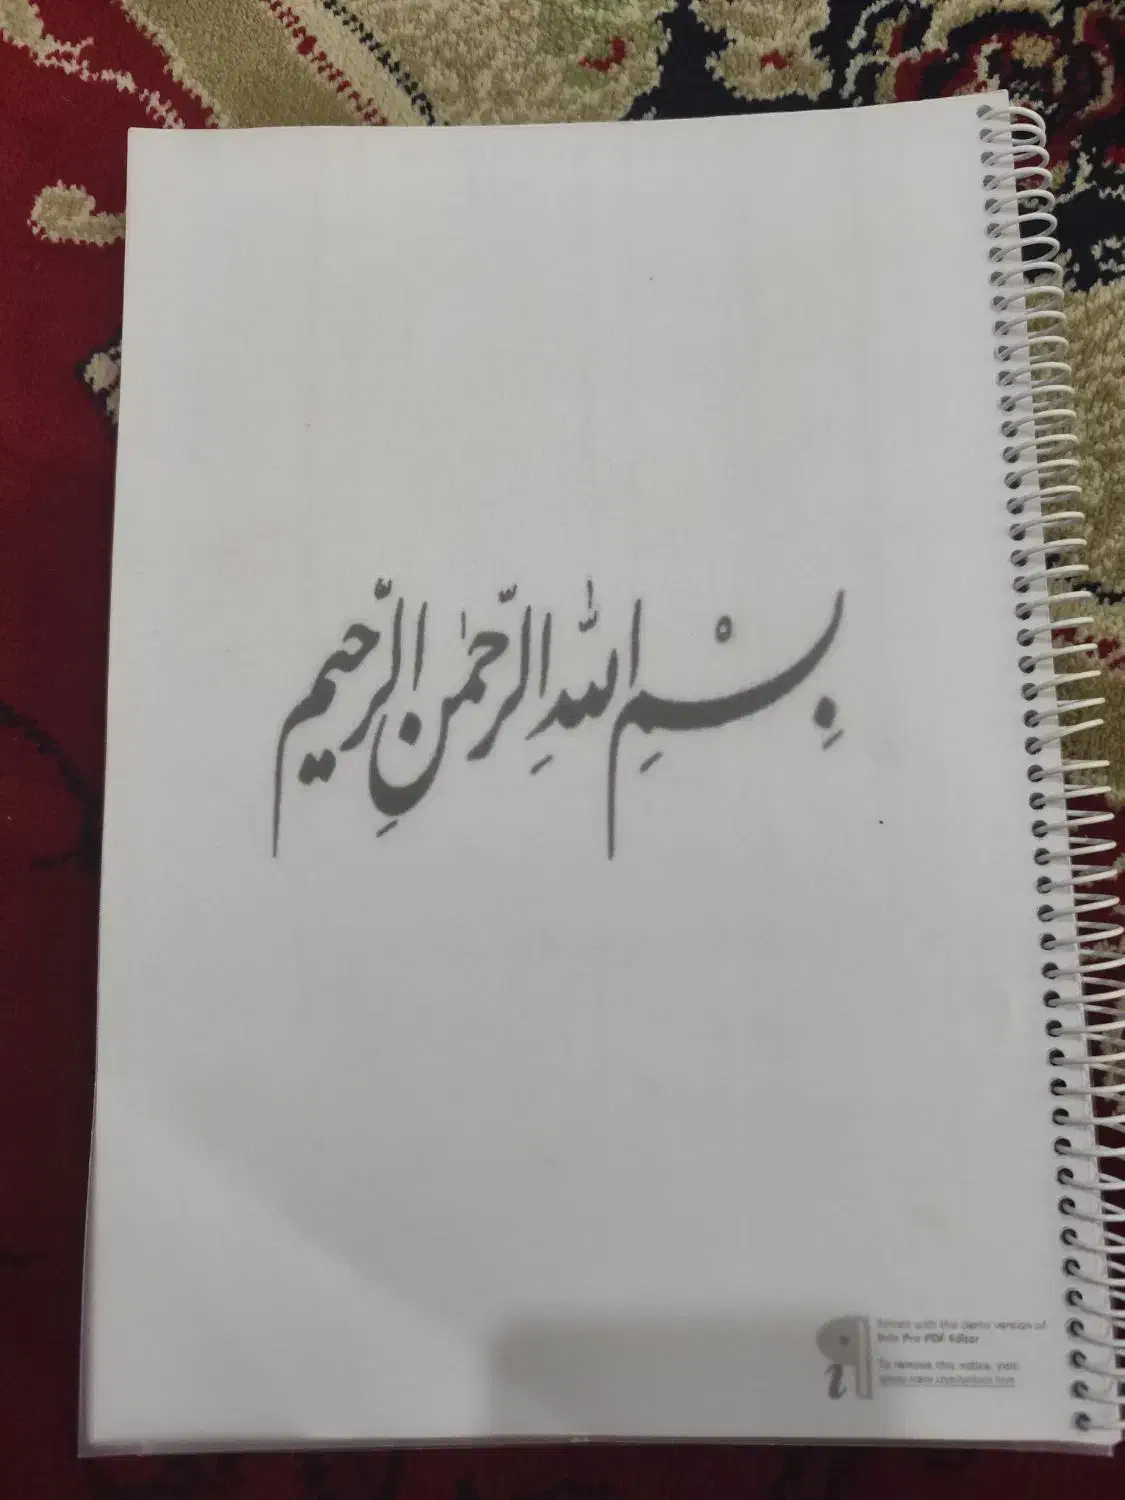 بِسْمِ اللهِ الرَّحْمٰنِ الرَّحیم
Edited with the demo version of
Infix Pro PDF Editor
To remove this notice, visit:
www.iceni.com/unlock.htm